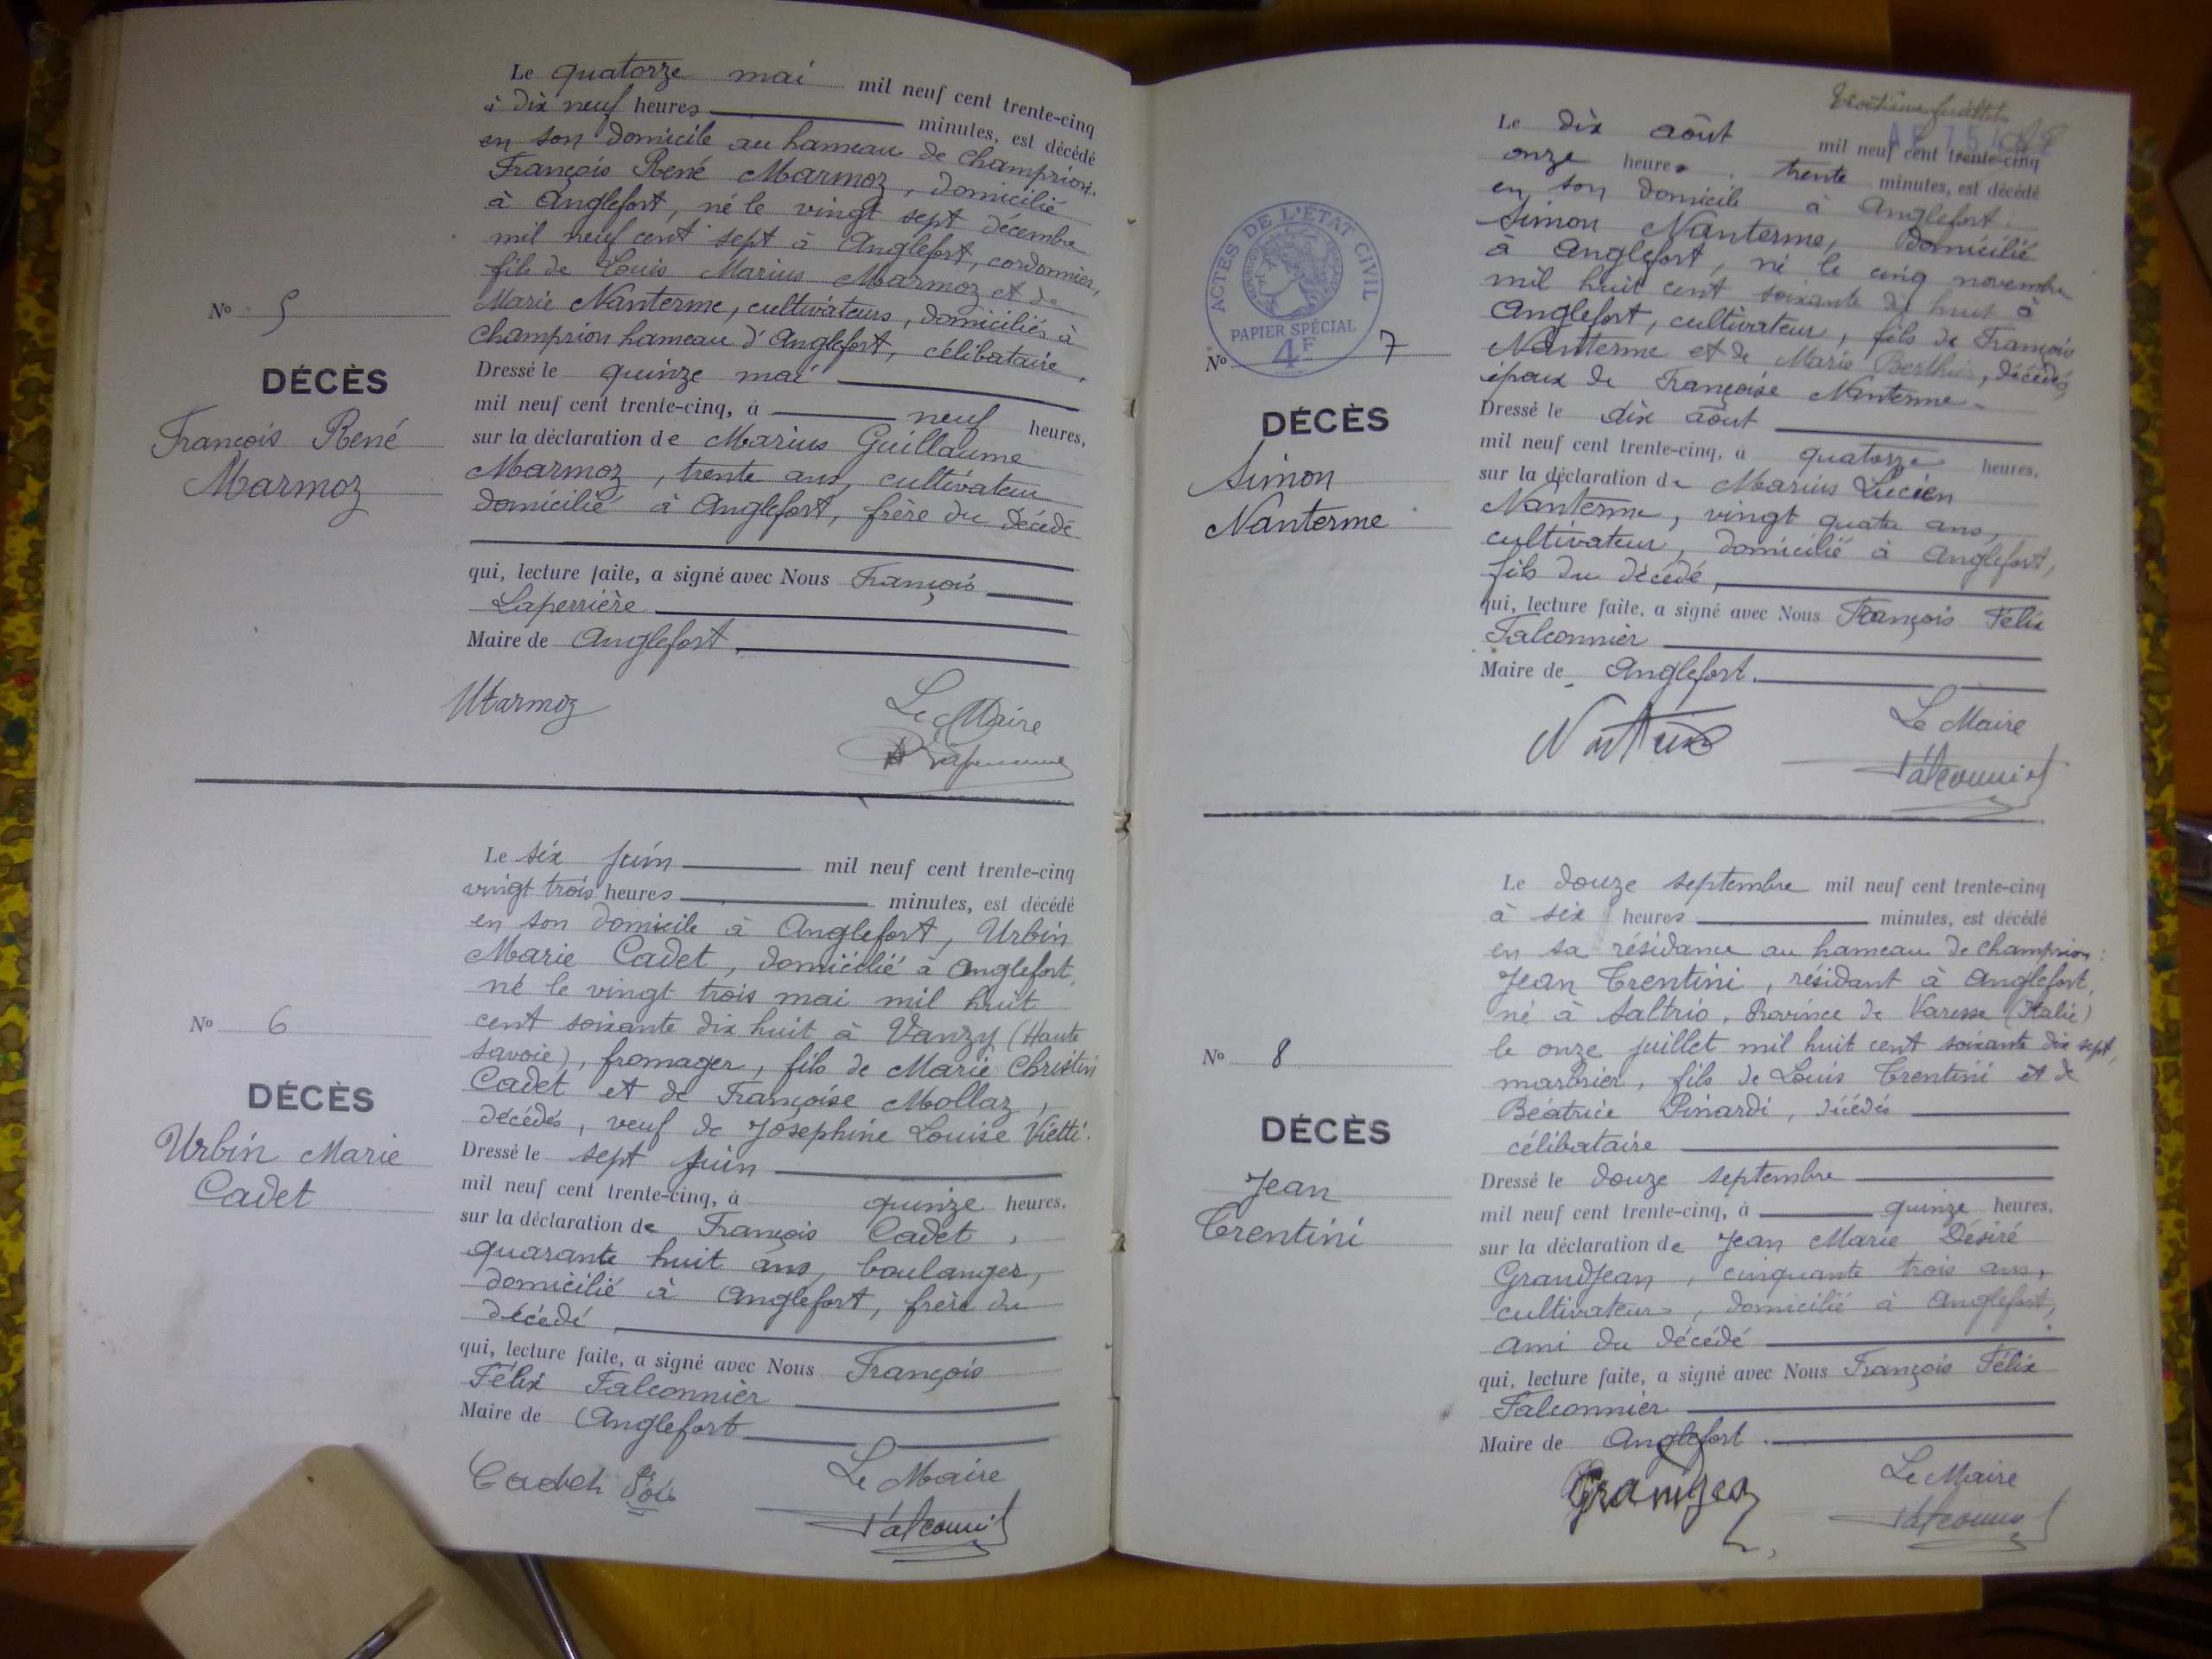 Le quatorze mai mil neuf cent trente-cinq
à dix neuf heures minutes, est décédé
en son domicile au hameau de Champrion.
François René Marmoz, domicilié
à Anglefort, né le vingt sept décembre
mil neuf cent sept à Anglefort, cordonnier,
fils de Louis Marius Marmoz et de
Marie Nanterme, cultivateurs, domiciliés à
Champrion hameau d'Anglefort, célibataire,
No 5
DÉCÈS
François René
Marmoz
Dressé le quinze mai
mil neuf cent trente-cinq, à neuf heures,
sur la déclaration de Marius Guillaume
Marmoz, trente ans, cultivateur
domicilié à Anglefort, frère du décédé
qui, lecture faite, a signé avec Nous François
Laperrière
Maire de Anglefort.
Marmoz
Le Maire
Le six juin mil neuf cent trente-cinq
vingt trois heures minutes, est décédé
en son domicile à Anglefort, Urbin
Marie Cadet, domicilié à Anglefort,
né le vingt trois mai mil huit
cent soixante dix huit à Vanzy (Haute
Savoie), fromager, fils de Marie Christin
Cadet et de Françoise Mollaz,
décédés, veuf de Joséphine Louise Vietti.
No 6
DÉCÈS
Urbin Marie
Cadet
Dressé le sept juin
mil neuf cent trente-cinq, à quinze heures.
sur la déclaration de François Cadet,
quarante huit ans, boulanger,
domicilié à Anglefort, frère du
décédé
qui, lecture faite, a signé avec Nous François
Félix Falconnier
Maire de Anglefort
Le Maire
Le dix août mil neuf cent trente-cinq
onze heures trente minutes, est décédé
en son domicile à Anglefort.
Simon Nanterme, domicilié
à Anglefort, né le cinq novembre
mil huit cent soixante dix huit à
Anglefort, cultivateur, fils de François
Nanterme et de Marie Berthier, décédés,
époux de Françoise Nanterme.
ACTES DE L'ÉTAT CIVIL
PAPIER SPÉCIAL
4F
No 7
DÉCÈS
Simon
Nanterme
Dressé le dix août
mil neuf cent trente-cinq, à quatorze heures.
sur la déclaration de Marius Lucien
Nanterme, vingt quatre ans,
cultivateur, domicilié à Anglefort,
fils du décédé,
qui, lecture faite, a signé avec Nous François Félix
Falconnier
Maire de Anglefort.
Le Maire
Le douze septembre mil neuf cent trente-cinq
à six heures minutes, est décédé
en sa résidance au hameau de Champrion:
Jean Trentini, résidant à Anglefort,
né à Saltrio, Province de Varesse (Italie)
le onze juillet mil huit cent soixante dix sept,
marbrier, fils de Louis Trentini et de
Béatrice Pinardi, décédés
célibataire
No 8
DÉCÈS
Jean
Trentini
Dressé le douze septembre
mil neuf cent trente-cinq, à quinze heures.
sur la déclaration de Jean Marie Désiré
Grandjean, cinquante trois ans,
cultivateur, domicilié à Anglefort,
ami du décédé
qui, lecture faite, a signé avec Nous François Félix
Falconnier
Maire de Anglefort.
Le Maire